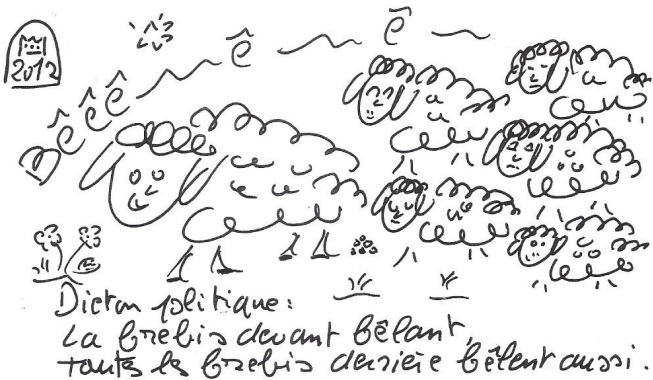 2012
ê ê ê ê ê
Dicton politique:
La brebis devant bêlant,
toutes les brebis derrière bêlent aussi.